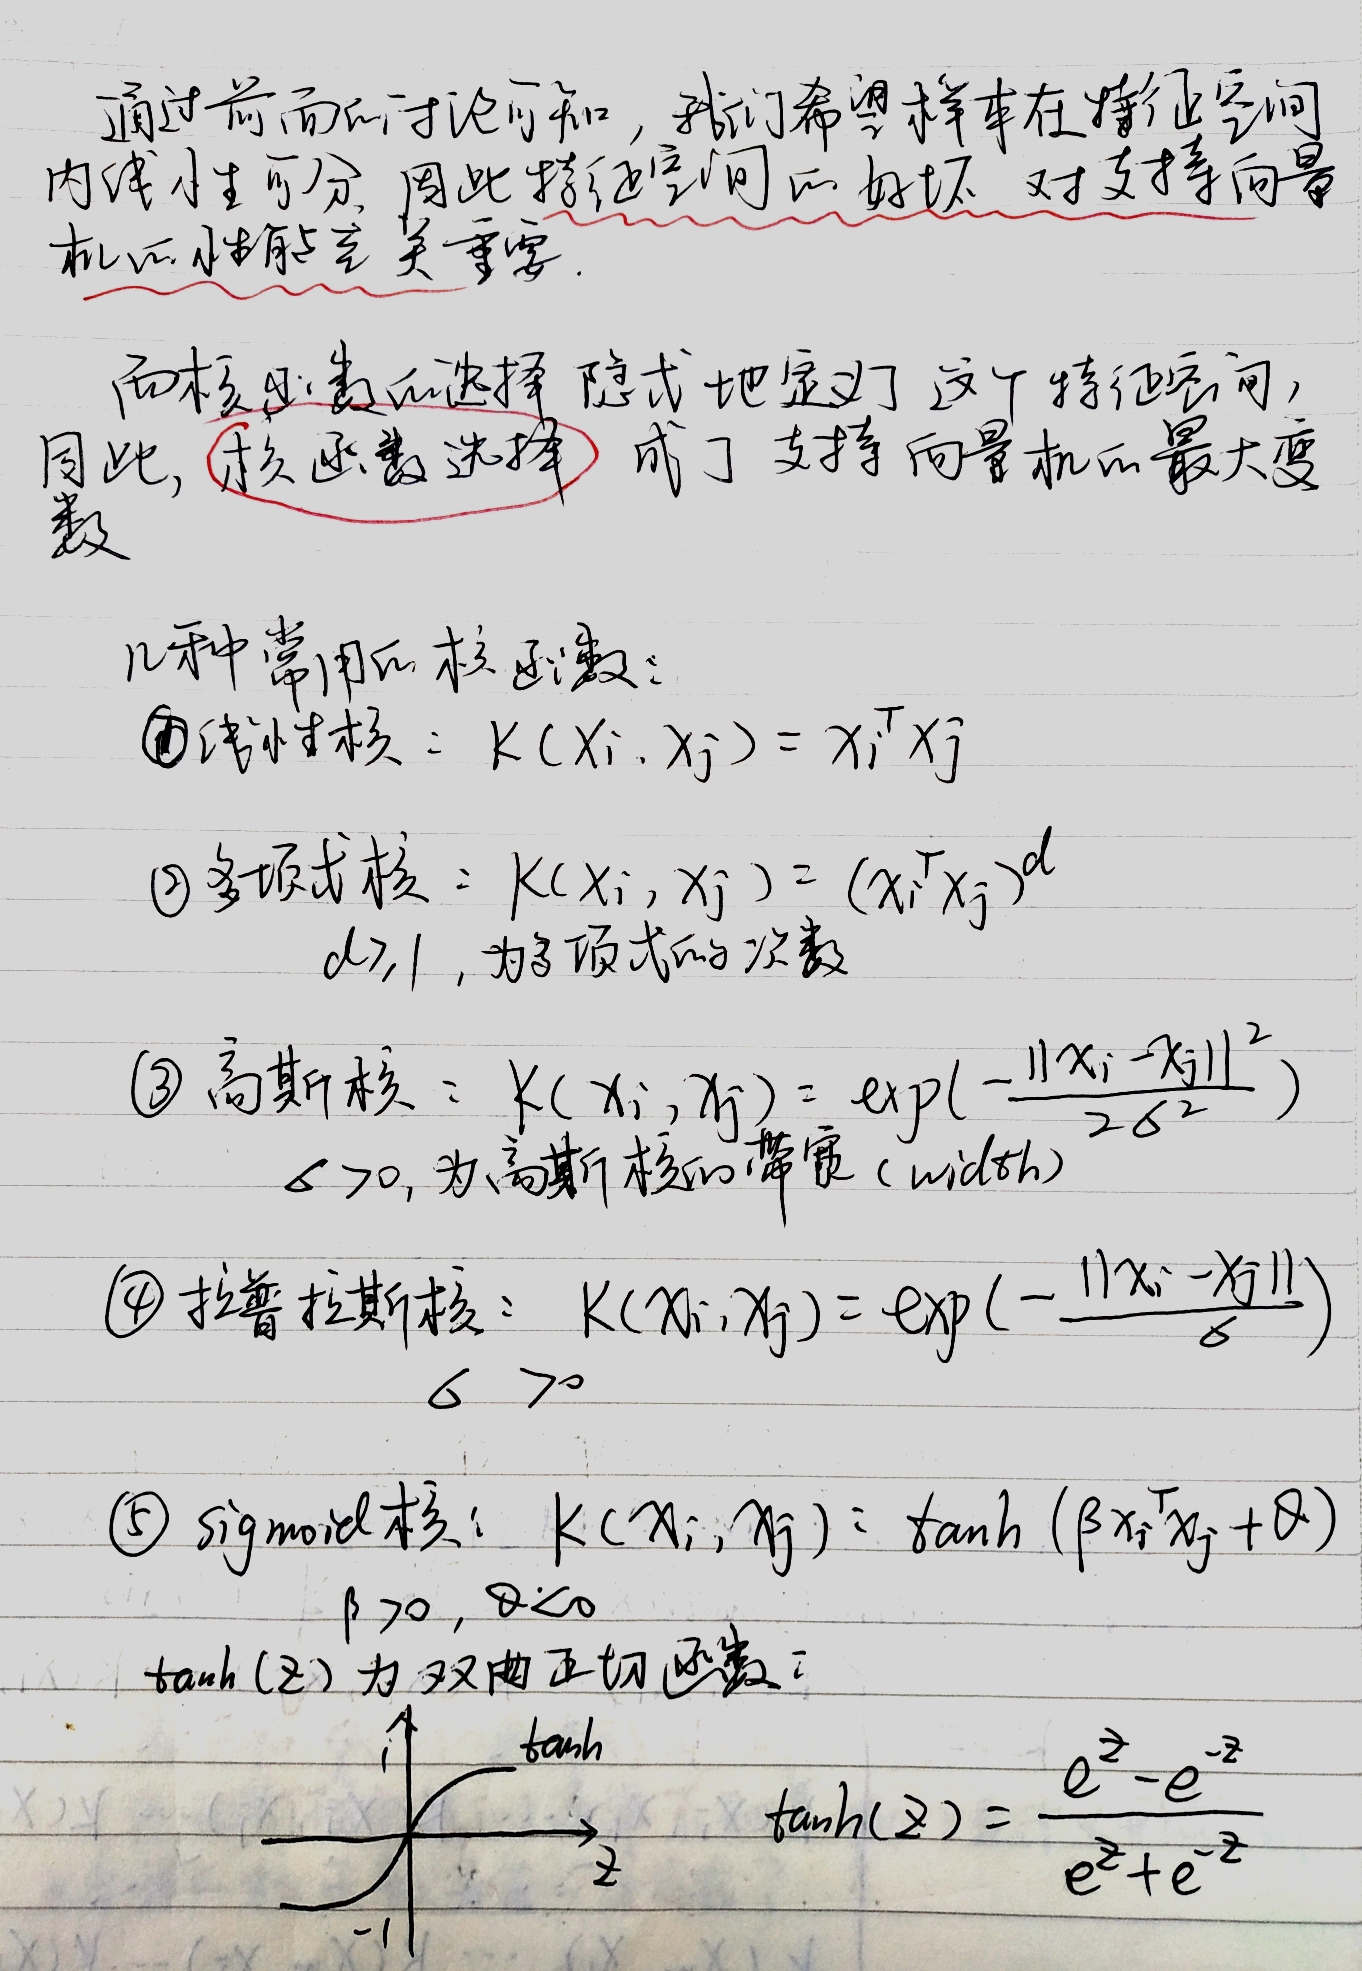 通过前面的讨论可知，我们希望样本在特征空间
内线性可分，因此特征空间的好坏 对支持向量
机的性能至关重要.
而核函数的选择 隐式地定义了 这个特征空间，
因此，核函数选择 成了 支持向量机的最大变
数
几种常用的核函数：
①线性核：K(xi, xj) = xiᵀxj
②多项式核：K(xi, xj) = (xiᵀxj)^d
d≥1，为多项式的次数
③ 高斯核：K(xi, xj) = exp(-||xi-xj||²/2σ²)
σ>0，为高斯核的带宽（width）
④拉普拉斯核：K(xi, xj) = exp(-||xi-xj||/σ)
σ >0
⑤ sigmoid核：K(xi, xj) = tanh(βxiᵀxj+θ)
β>0，θ<0
tanh(z) 为双曲正切函数：
1
tanh
z
-1
tanh(z) = (e^z-e^-z)/(e^z+e^-z)